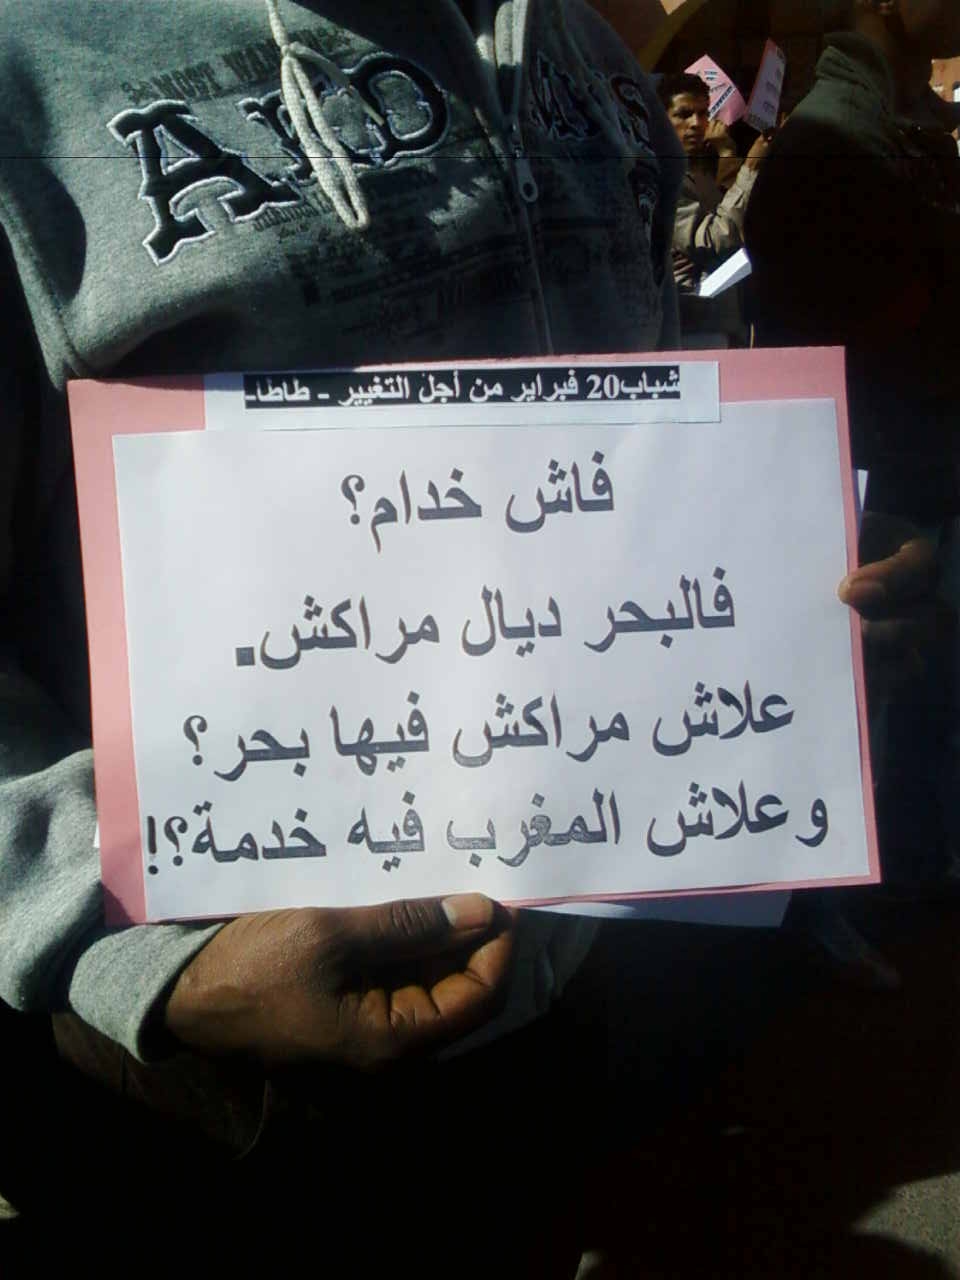 MOST WANTED
AND
شباب20 فبراير من أجل التغيير - طاطا-
فاش خدام؟
فالبحر ديال مراكش.
علاش مراكش فيها بحر؟
وعلاش المغرب فيه خدمة؟!